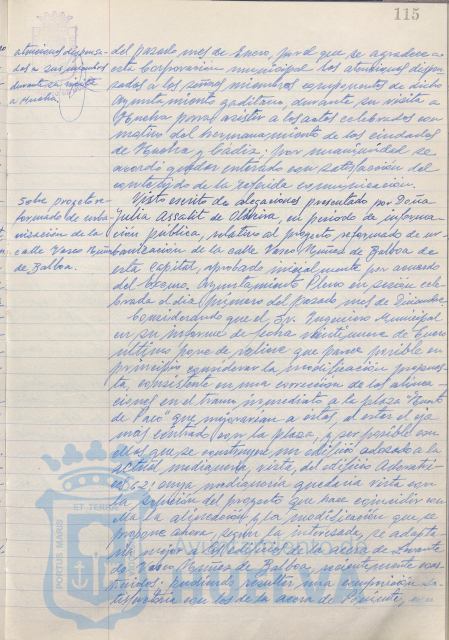 115
atenciones dispensa-
das a sus miembros
durante su visita
a Huelva
del pasado mes de Enero, por el que se agradece a
esta Corporación municipal las atenciones dispen-
sadas a los señores miembros componentes de dicho
Ayuntamiento gaditano, durante su visita a
Huelva para asistir a los actos celebrados con
motivo del hermanamiento de las ciudades
de Huelva y Cádiz: por unanimidad se
acordó quedar enterado con satisfacción del
contenido de la referida comunicación.
Sobre proyecto re-
formado de urba-
nización de la
calle Vasco Núñez
de Balboa.
Visto escrito de alegaciones presentado por Doña
Julia Assalit de, en periodo de informa-
ción pública, relativo al proyecto reformado de ur-
banización de la calle Vasco Núñez de Balboa de
esta capital, aprobado inicialmente por acuerdo
del Excmo. Ayuntamiento Pleno en sesión cele-
brada el día primero del pasado mes de Diciembre
Considerando que el Sr. Ingeniero Municipal
en su informe de fecha veintinueve de Enero
último pone de relieve que parece posible en
principio considerar la modificación propues-
ta, consistente en una corrección de las alinea-
ciones en el tramo inmediato a la plaza "
de Paco" que mejorarían a éstas, al estar el eje
más centrado con la plaza, y ser posible con
ellas que se construyese un edificio adosado a la
actual medianería vista, del edificio
62; cuya medianería quedaría vista con
la solución del proyecto que hace coincidir con
ella la alineación y la modificación que se
propone ahora, según la interesada, se adapta-
ría mejor a los edificios de la acera de Levante
de Vasco Núñez de Balboa, recientemente cons-
truidos: pudiendo resultar una composición sa-
tisfactoria con los de la acera de Poniente,
PORTUS MARIS
ET TERRAE